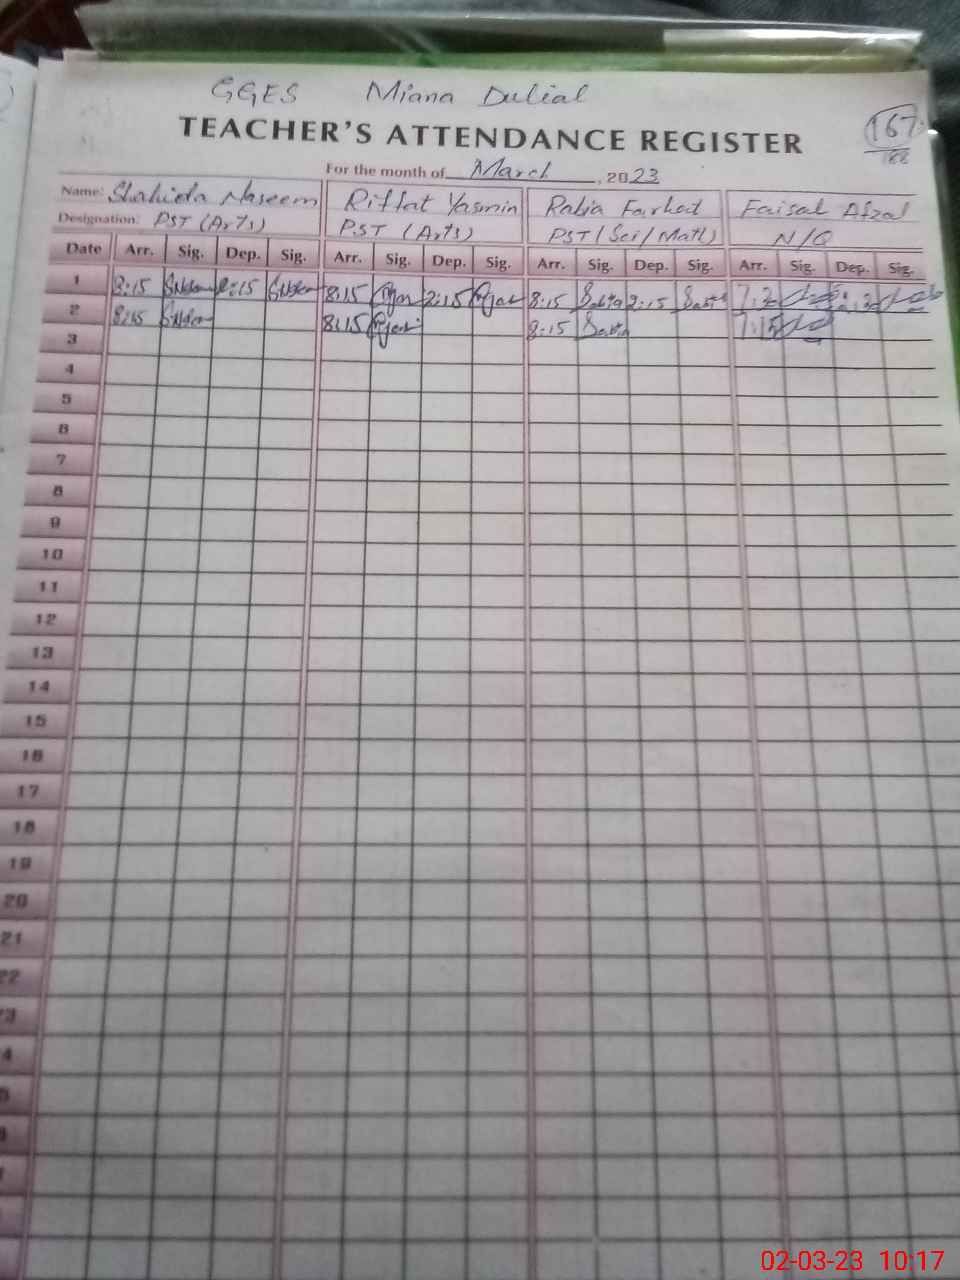 GGES Miana Dulial
TEACHER'S ATTENDANCE REGISTER
167
188
For the month of March, 2023
Name: Shahida Naseem Riffat Yasmin Rabia Farhat Faisal Afzal
Designation: PST (Arts) PST (Arts) PST (Sci/Math) N/Q
Date Arr. Sig. Dep. Sig. Arr. Sig. Dep. Sig. Arr. Sig. Dep. Sig. Arr. Sig. Dep. Sig.
1 8:15 2:15 8:15 2:15 8:15 Rabia 2:15 Rabia
2 8:15 8:15 8:15 Rabia 7:15
3
4
5
6
7
8
9
10
11
12
13
14
15
16
17
18
19
20
21
22
02-03-23 10:17